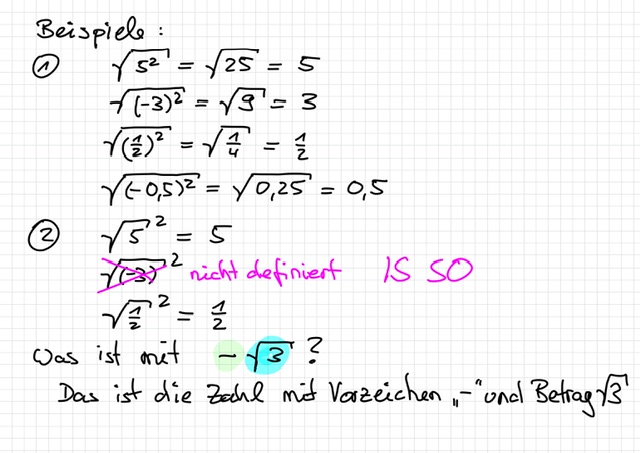 Beispiele:
① √5² = √25 = 5
√(-3)² = √9 = 3
√(½)² = √¼ = ½
√(-0,5)² = √0,25 = 0,5
② √5² = 5
√(-3)² nicht definiert IS SO
√½² = ½
Was ist mit -√3 ?
Das ist die Zahl mit Vorzeichen „-“ und Betrag √3